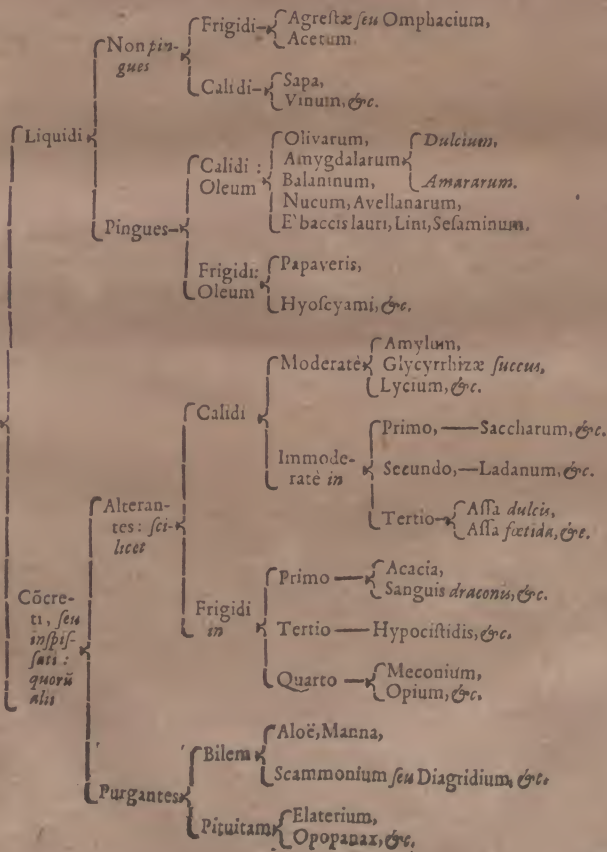 Liquidi
Non pin-
gues
Frigidi
Agreſtæ ſeu Omphacium,
Acetum.
Calidi
Sapa,
Vinum, &c.
Pingues
Calidi :
Oleum
Olivarum,
Amygdalarum
Dulcium,
Amararum.
Balaninum,
Nucum, Avellanarum,
E' baccis lauri, Lini, Seſaminum.
Frigidi:
Oleum
Papaveris,
Hyoſcyami, &c.
Cōcre-
ti, ſeu
inſpiſ-
ſati :
quorū
alii
Alteran-
tes : ſci-
licet
Calidi
Moderatè
Amylum,
Glycyrrhizæ ſuccus,
Lycium, &c.
Immode-
ratè in
Primo, — Saccharum, &c.
Secundo, — Ladanum, &c.
Tertio
Aſſa dulcis,
Aſſa fœtida, &c.
Frigidi
in
Primo —
Acacia,
Sanguis draconis, &c.
Tertio — Hypociſtidis, &c.
Quarto —
Meconium,
Opium, &c.
Purgantes
Bilem
Aloë, Manna,
Scammonium ſeu Diagridium, &c.
Pituitam
Elaterium,
Opopanax, &c.